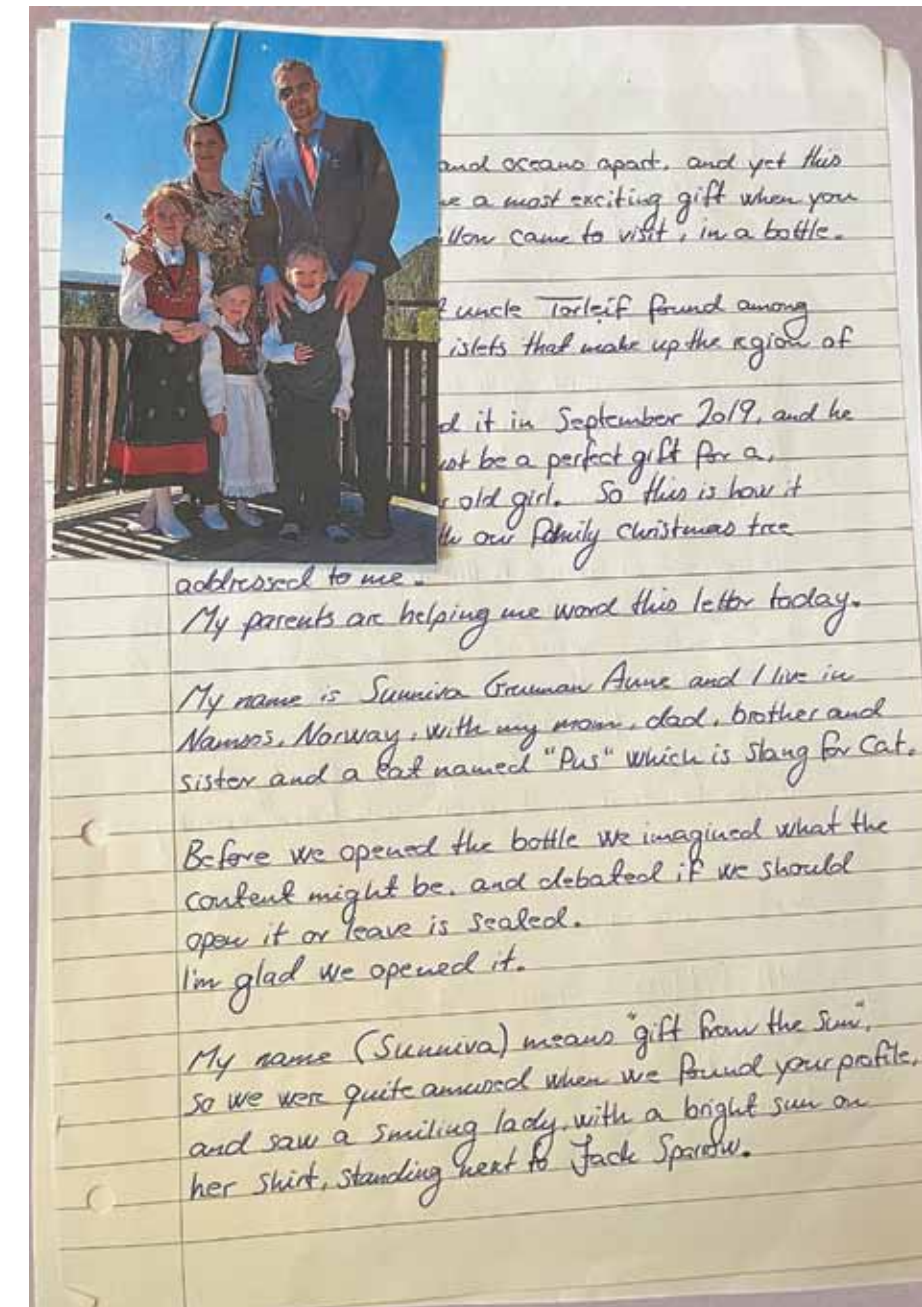 and oceans apart, and yet this
a most exciting gift when you
came to visit, in a bottle.
uncle Torleif found among
islets that make up the region of
it in September 2019, and he
be a perfect gift for a,
old girl. So this is how it
our family christmas tree
addressed to me.
My parents are helping me word this letter today.
My name is Sunniva Aune and I live in
Namsos, Norway, with my mom, dad, brother and
sister and a cat named "Pus" which is slang for Cat.
Before we opened the bottle we imagined what the
content might be, and debated if we should
open it or leave is sealed.
I'm glad we opened it.
My name (Sunniva) means "gift from the Sun",
so we were quite amused when we found your profile,
and saw a smiling lady, with a bright sun on
her shirt, standing next to Jack Sparrow.